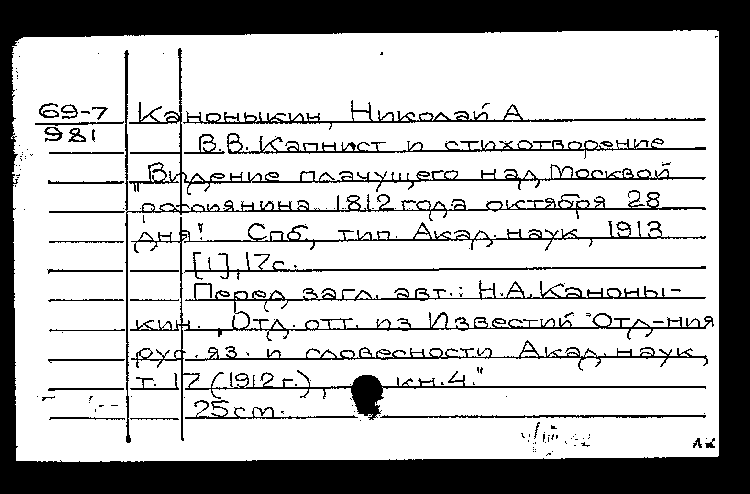 69-7
981
Каноныкин, Николай А
В.В. Капнист и стихотворение
„Видение плачущего над Москвой
россиянина 1812 года октября 28
дня! Спб., тип. Акад. наук, 1913
[1], 17с.
Перед загл. авт.: Н.А. Каноны-
кин. „Отд. отт. из Известий Отд-ния
рус. яз. и словесности Акад. наук,
т. 17 (1912 г.), кн. 4."
25 cm.
лк